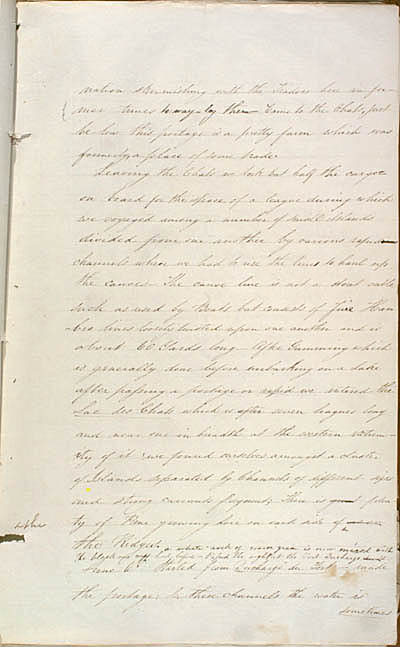 nation skirmishing with the Traders here in for-
mer times to way lay them Came to the Chats, just
below this portage is a pretty farm which was
formerly a place of some trade
Leaving the Chats we took out half the cargoe
on board for the space of a league during which
we voyaged among a number of small islands
divided from one another by various rapid
channels where we had to use the lines to haul up
the canoes. The canoe line is not a stout cable
such as used by Boats but consists of five Ham-
bro lines loosely twisted upon one another and is
about 60 Yards long. After Gumming which
is generally done before embarking on a Lake
after passing a portage or rapid we entered the
Lac des Chats which is after seven leagues long
and near one in breadth at the western extrem-
ity of it we found ourselves amongst a cluster
of Islands separated by Channels of different sizes
and strong currents. There is great plen-
ty of Pine growing here on each side of
the Ridges,
the black
June 6th Started from du Fort made
the portage. In these channels the water is
sometimes